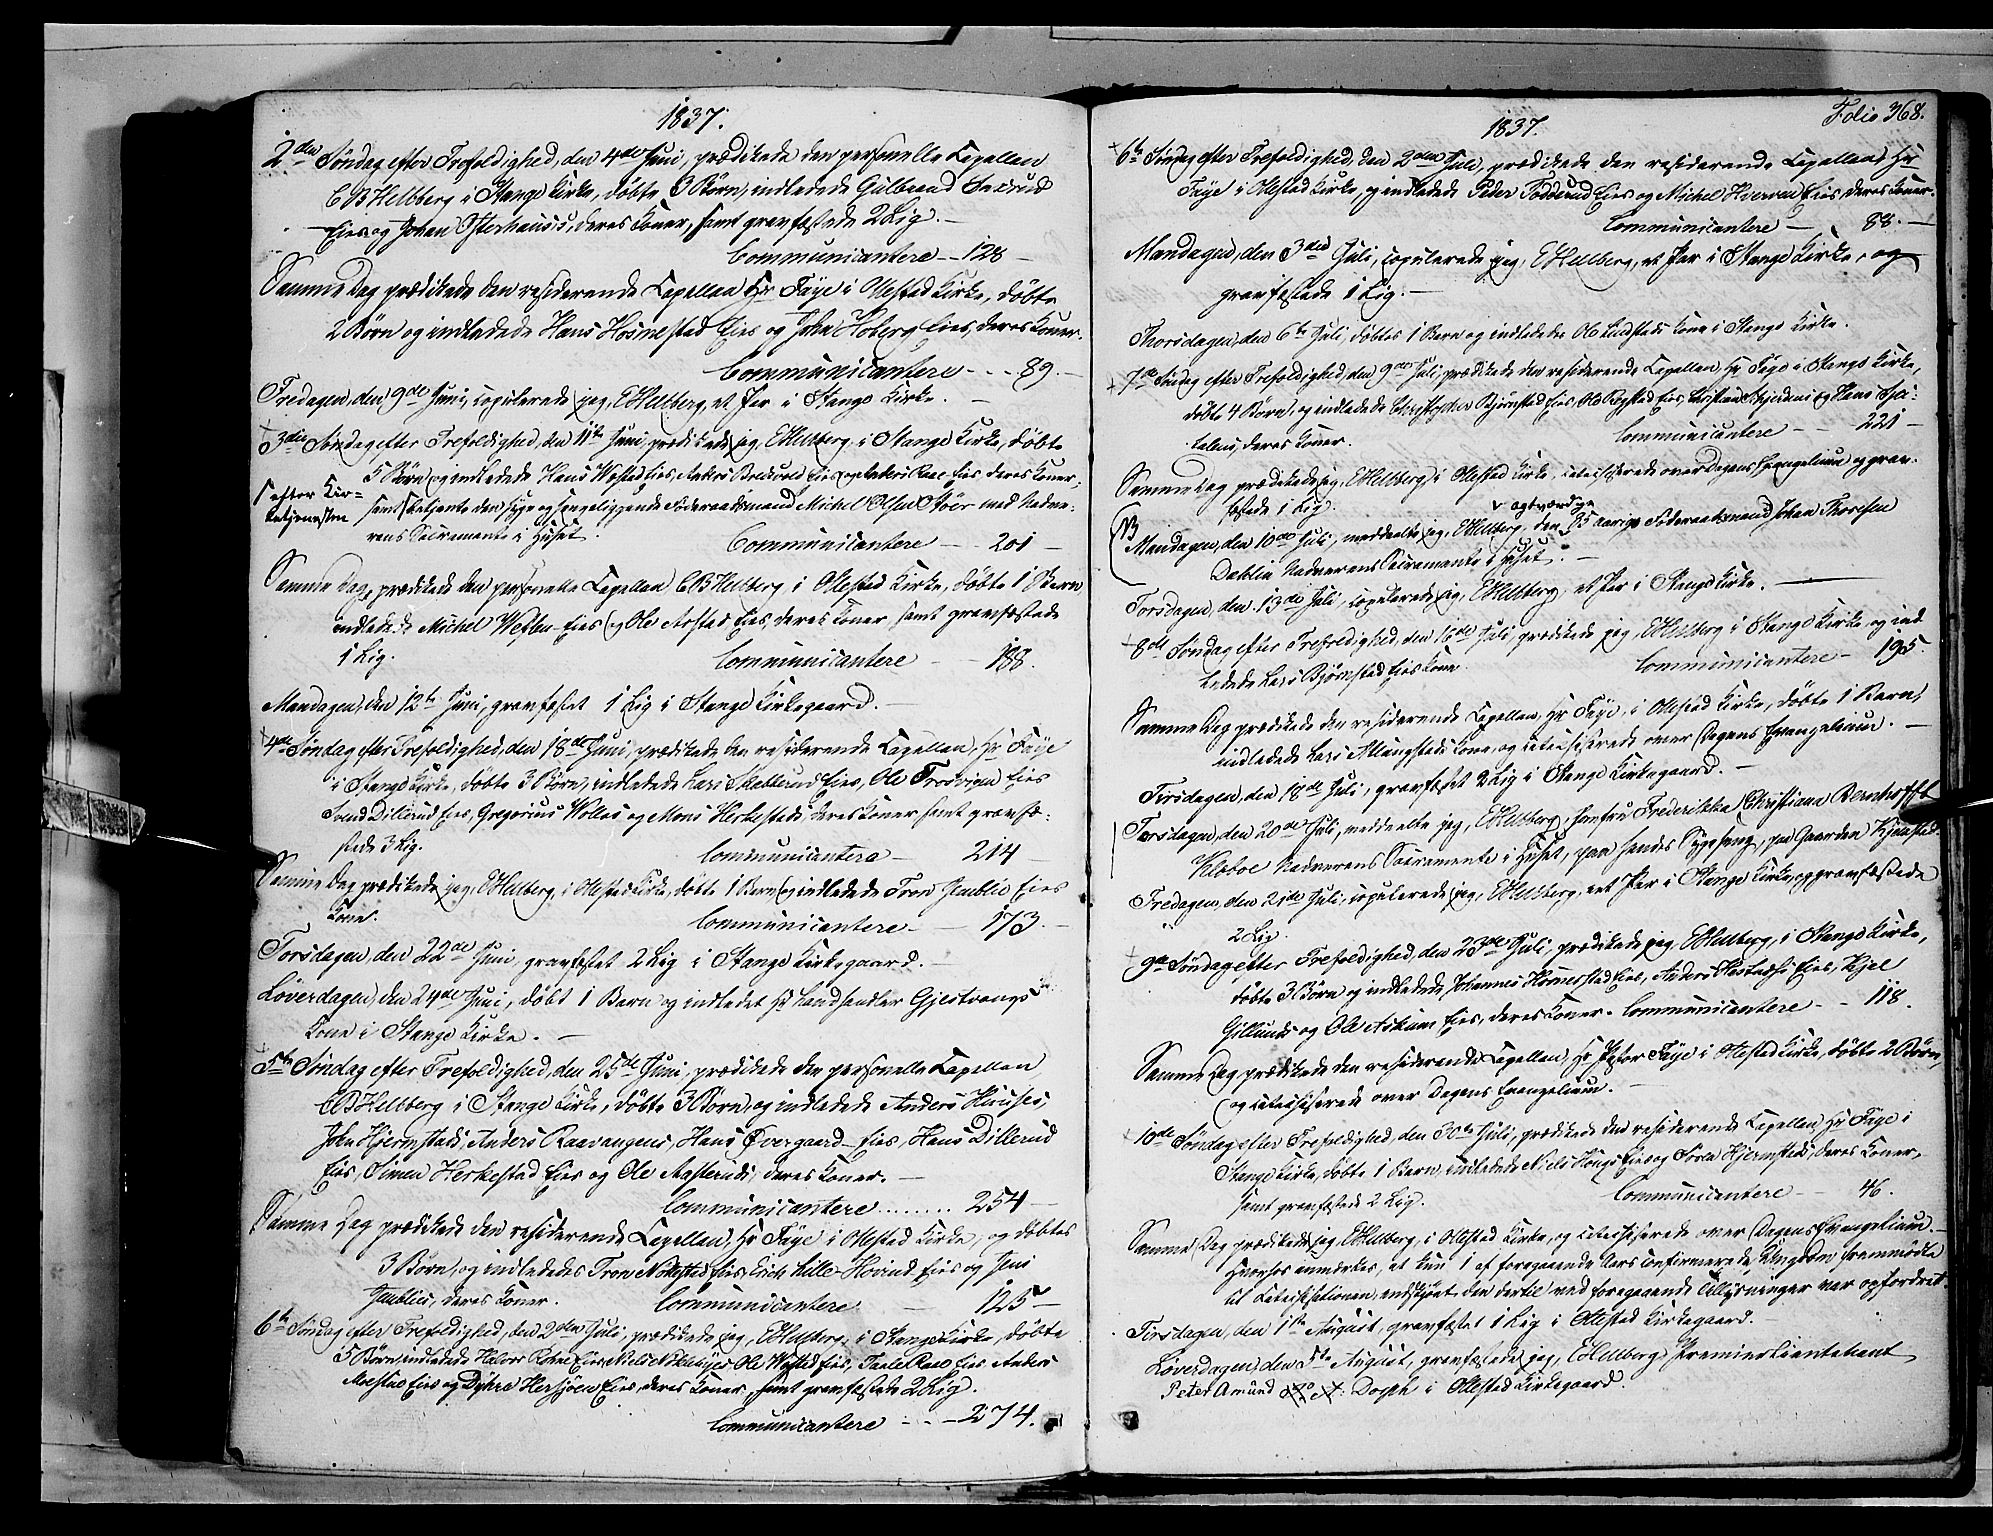 1837.
2den Søndag efter Trefoldighed, den 4de Juni, prædikede den personelle Capellan
CB Hellberg i Stange Kirke, døbte 3 Børn, indledede Gulbrand
Eies og Johan Østerhaugs, deres Koner, samt gravfæstede 2 Lig. —
Communicantere — 128 —
Samme Dag prædikede den residerende Capellan Hr Faye i Ottestad Kirke, døbte
2 Børn og indledede Hans Hosmestad Eies og John Hoberg Eies, deres Koner.
Communicantere - - - 89. —
Fredagen, den 9de Juni, copulerede jeg, E Hellberg, et Par i Stange Kirke. —
3die Søndag efter Trefoldighed, den 11te Juni, prædikede jeg, E Hellberg, i Stange Kirke, døbte
5 Børn og indledede Hans Wæstad Eies, Anders Bredvold Eies og Anders Raae Eies deres Koner,
efter Kir= ketjenesten
samt betjente den syge og sengeliggende Föderaadsmand Michel Olsen Stöer med Nadve=
rens Sacramente i Huset.
Communicantere — 201 —
Samme Dag, prædikede den personelle Capellan CB Hellberg i Ottestad Kirke, døbte 1 Barn
indledede Michel Weslen Eies og Ole Arstad Eies, deres Koner samt gravfæstede
1 Lig.
Communicantere — 188.
Mandagen, den 12te Juni, gravfæstet 1 Lig i Stange Kirkegaard. —
4de Søndag efter Trefoldighed, den 18de Juni, prædikede den residerende Capellan, Hr Faye
i Stange Kirke, døbte 3 Børn, indledede Lars Skallerud Eies, Ole Frosvigen Eies
Svend Dillerud Eies, Gregorius Wollos og Mons Herkestads, deres Koner samt gravfæ=
stede 3 Lig.
Communicantere — 214
Samme Dag prædikede jeg, E Hellberg, i Ottestad Kirke, døbte 1 Barn og indledede Tron Jemblie Eies
Kone.
Communicantere — 173. —
Torsdagen, den 22de Juni, gravfæstet 2 Lig i Stange Kirkegaard. —
Løverdagen, den 24de Juni, døbt 1 Barn og indledet Hr Landhandler Gjestvangs
Kone i Stange Kirke. —
5te Søndag efter Trefoldighed, den 25de Juni, prædikede den personelle Capellan
CB Hellberg i Stange Kirke, døbte 3 Børn, og indledede Anders Huuses,
John Hjermstads, Anders Raavangens, Hans Øvergaard Eies, Hans Dillerud
Eies, Simen Herkestad Eies og Ole Aasteruds, deres Koner. —
Communicantere ........ 254 —
Samme Dag prædikede den residerende Capellan, Hr Faye i Ottestad Kirke, og døbtes
3 Børn, og indledede Tron Nokestad Eies, Erich Lille-Hovind Eies og Jens
Jemblies, deres Koner.
Communicantere — 125 —
6te Søndag efter Trefoldighed, den 2den Juli, prædikede jeg, E Hellberg, i Stange Kirke, døbte
5 Børn, indledede Halvor Rohne Eies, Niels Ole Wæstad Eies, Taale Raae Eies, Anders
Moestue Eies og Dyhre Hersjöen Eies, deres Koner, samt gravfæstede 2 Lig.
Communicantere - - - 274.
1837.
Folio 368.
6te Søndag efter Trefoldighed, den 2den Juli, prædikede den residerende Capellan Hr
Faye i Ottestad Kirke, og indledede Peder Tödderud Eies og Michel Hverven Eies, deres Koner.
Communicantere — 88. —
Mandagen, den 3die Juli, copulerede jeg, E Hellberg, et Par i Stange Kirke, og
gravfæstede 1 Lig. —
Thorsdagen, den 6te Juli, døbtes 1 Barn og indledede Ole Lindstads Kone i Stange Kirke.
7de Søndag efter Trefoldighed, den 9de Juli, prædikede den residerende Capellan, Hr Faye i Stange Kirke,
døbte 4 Børn, og indledede Christopher Bjørnstad Eies, Ole Rogstad Eies, Christian Skjerdens og Hans Gjæ=
talens, deres Koner.
Communicantere — 221 —
Samme Dag prædikede jeg, E Hellberg, i Ottestad Kirke, catechiserede over Dagens Evangelium og grav=
fæstede 1 Lig.
NB
Mandagen, den 10de Juli, meddeelte jeg, E Hellberg, den 85 aarige Föderaadsmand Johan Thoresen
Dæhlin Nadverens Sacramente i Huset. —
Torsdagen, den 13de Juli, copulerede jeg, E Hellberg, et Par i Stange Kirke. —
8de Søndag efter Trefoldighed, den 16de Juli, prædikede jeg, E Hellberg i Stange Kirke, og ind
ledede Lars Bjørnstad Eies Kone.
Communicantere — 195.
Samme Dag prædikede den residerende Capellan, Hr Faye, i Ottestad Kirke, døbte 1 Barn,
indledede Lars Klungstads Kone, og catechiserede over Dagens Evangelium. —
Tirsdagen, den 18de Juli, gravfæstet 2 Lig i Stange Kirkegaard. —
Torsdagen, den 20de Juli, meddeelte jeg, E Hellberg, Jomfru Frederikke Christiane Bernhofft
Kloboe Nadverens Sacramente i Huset, paa hendes Sygeseng, paa Gaarden Kjemstad.
Fredagen, den 21de Juli, copulerede jeg, E Hellberg, eet Par i Stange Kirke, og gravfæstede
2 Lig.
9de Søndag efter Trefoldighed, den 23de Juli, prædikede jeg, E Hellberg, i Stange Kirke,
døbte 3 Børn og indledede Johannes Hommestad Eies, Anders Eies, Kjel
Gillunds og Ole Askum Eies, deres Koner. Communicantere — 118.
Samme Dag prædikede den residerende Capellan, Hr Pastor Faye i Ottestad Kirke, døbte 2 Børn,
og catechiserede over Dagens Evangelium. —
10de Søndag efter Trefoldighed, den 30te Juli, prædikede den residerende Capellan, Hr Faye i
Stange Kirke, døbte 1 Barn, indledede Niels Haugs Eies og Søren Hjermstads, deres Koner,
samt gravfæstede 2 Lig.
Communicantere — 46.
Samme Dag prædikede jeg, E Hellberg, i Ottestad Kirke, og catechiserede over Dagens Evangelium —
hvorhos anmærkes, at kun 1 af foregaaende Aars confirmerede Ungdom fremmödte
til Catechisationen, endskjönt den dertil ved foregaaende Tillysninger var opfordret.
Tirsdagen, den 1ste August, gravfæstet 1 Lig i Ottestad Kirkegaard.
Løverdagen, den 5te August, gravfæstede jeg, E Hellberg, Premierlieutenant
Peter Amund Dorph i Ottestad Kirkegaard.